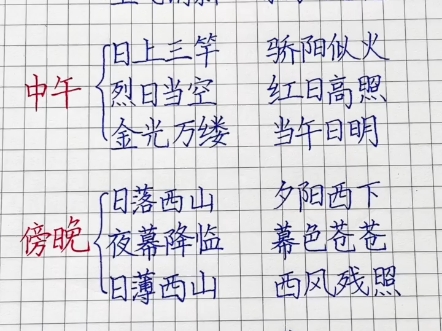 日上三竿 骄阳似火
中午 烈日当空 红日高照
金光万缕 当午日明
日落西山 夕阳西下
傍晚 夜幕降临 暮色苍苍
日薄西山 西风残照